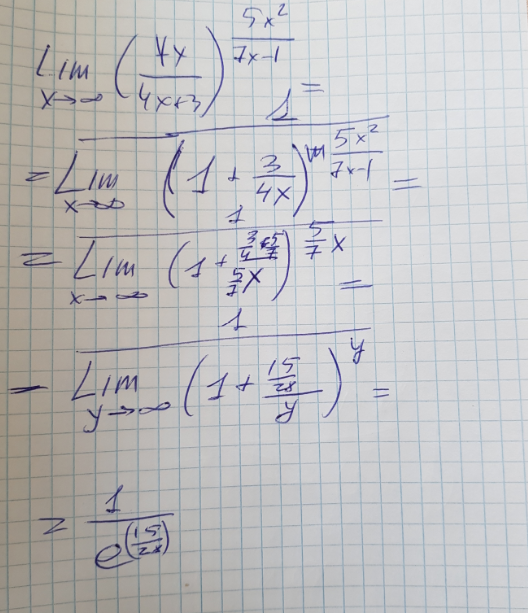 Lim x→∞ (4x/(4x+3))^(5x²/(7x-1)) =
= 1/(Lim x→∞ (1 + 3/(4x))^(5x²/(7x-1))) =
= 1/(Lim x→∞ (1 + (3/4·5/7)/(5/7 x))^(5/7 x)) =
= 1/(Lim y→∞ (1 + (15/28)/y)^y) =
= 1/e^(15/28)